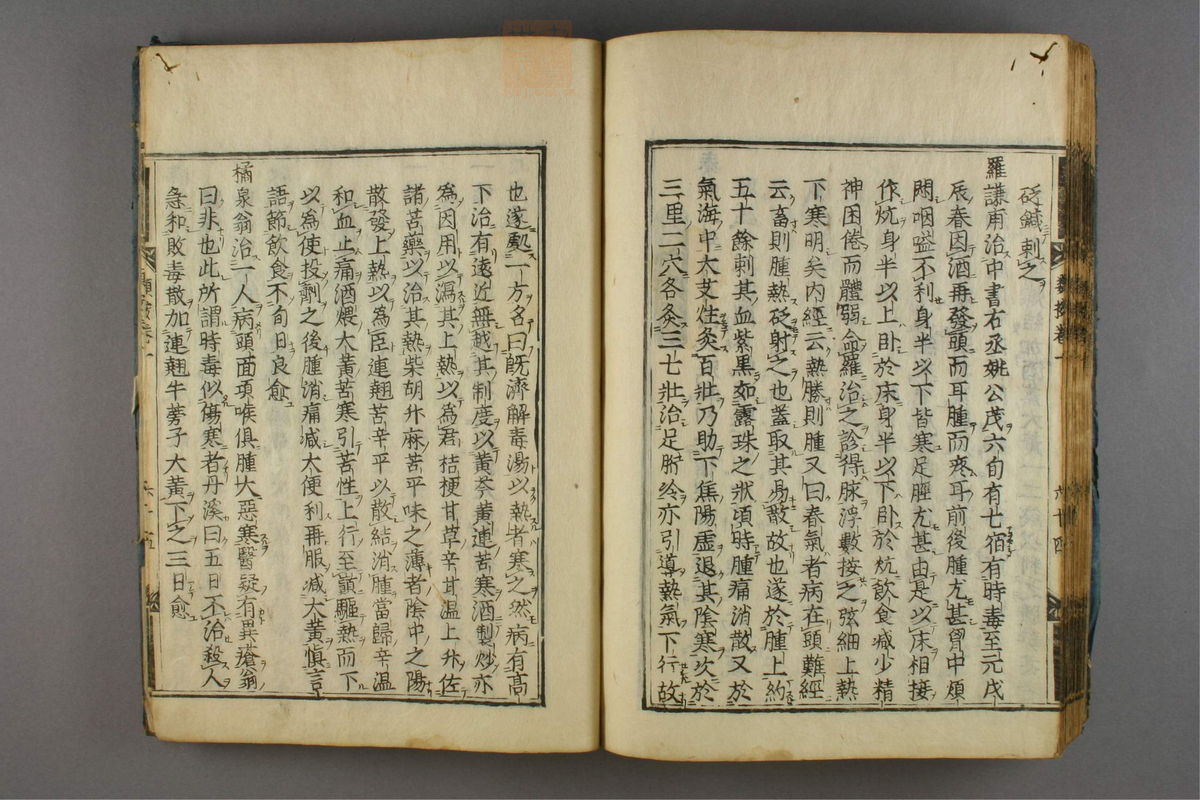 砭鍼刺之
羅謙甫治中書右丞姚公茂六旬有七宿有時毒至元戊
辰春因酒再發頭面耳腫而疼耳前後腫尤甚胷中煩
悶咽嗌不利身半以下皆寒足脛尤甚由是以床相接
作炕身半以上卧於床身半以下卧於炕飲食减少精
神困倦而體弱命羅治之診得脉浮數按之弦細上熱
下寒明矣内經云熱勝則腫又曰春氣者病在頭難經
云畜則腫熱砭射之也盖取其易散故也遂於腫上約
五十餘刺其血紫黒如露珠之狀頃時腫痛消散又於
氣海中大艾炷灸百壯乃助下焦陽虚退其陰寒次於
三里二穴各灸三七壯治足䯒冷亦引導熱氣下行故
六十四
也遂處一方名曰旣濟解毒湯以熱者寒之然病有髙
下治有遠近無越其制度以黄芩黄連苦寒酒製炒亦
為因用以瀉其上熱以為君桔梗甘草辛甘温上升佐
諸苦藥以治其熱柴胡升麻苦平味之薄者陰中之陽
散發上熱以為臣連翹苦辛平以散結消腫當歸辛温
和血止痛酒煨大黄苦寒引苦性上行至巔驅熱而下
以為使投劑之後腫消痛减大便利再服减大黄慎言
語節飲食不旬日良愈
橘泉翁治一人病頭面項喉俱腫大惡寒醫疑有異瘡翁
曰非也此所謂時毒似傷寒者丹溪曰五日不治殺人
急和敗毒散加連翹牛蒡子大黄下之三日愈
六十五